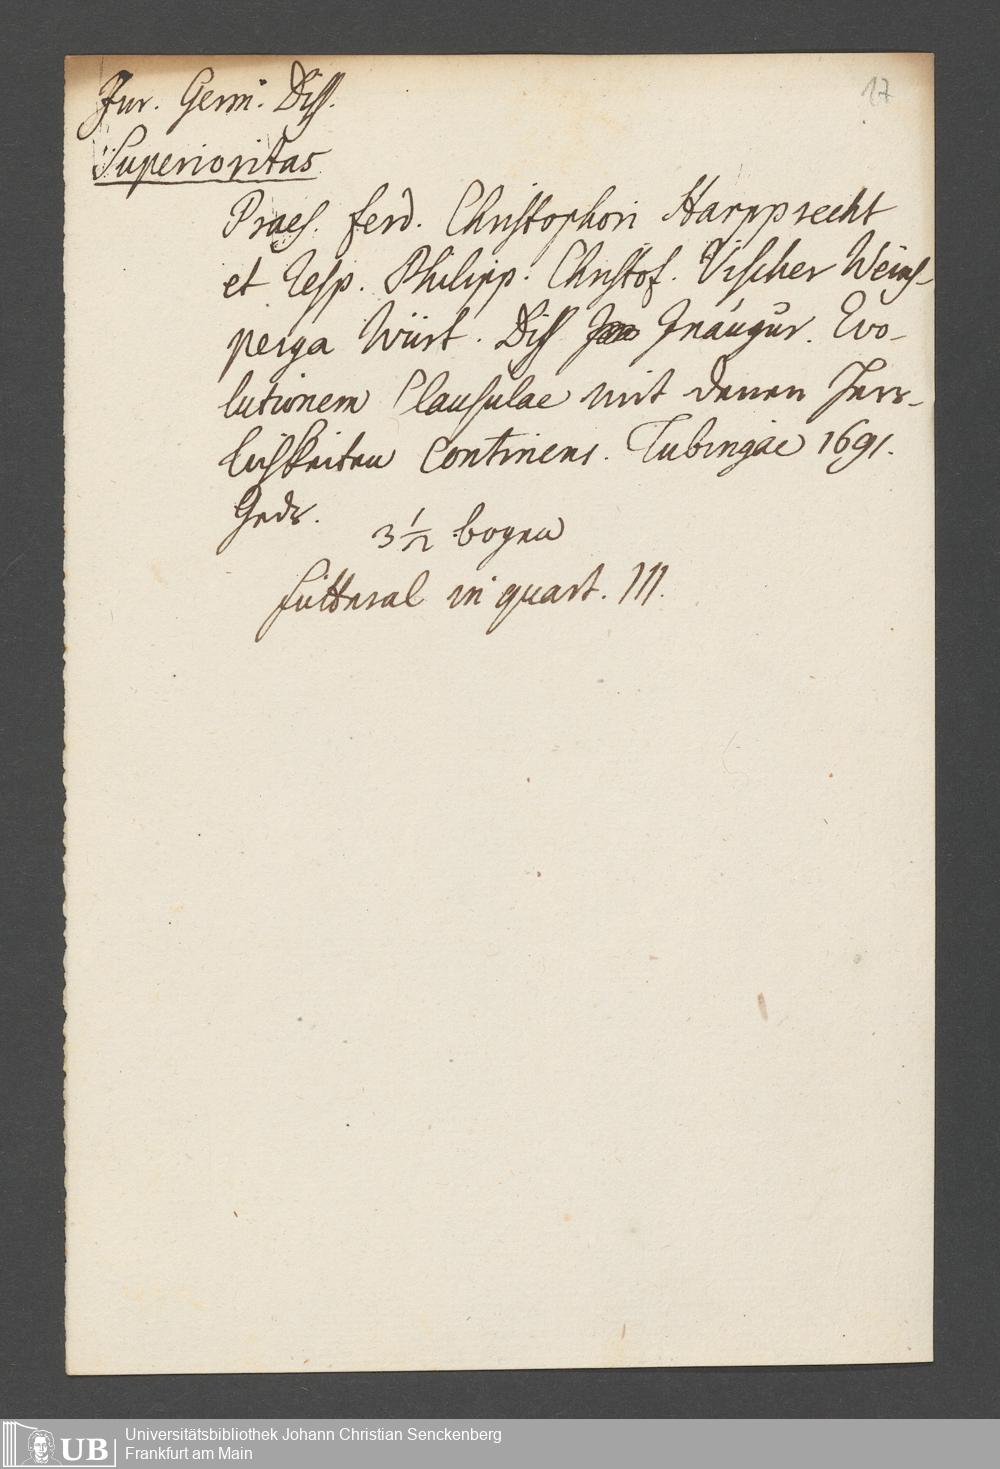 Jur. Germ. Diss.
17
Superioritas
Praes. Ferd. Christophori Harpprecht
et Resp. Philipp. Christof. Vischer Weins-
perga Würt. Diss Inaugur. Evo-
lutionem Clausulae mit denen Herr-
lichkeiten Continens. Tubingae 1691.
Gedr.
3 1/2 bogen
Futteral in quart. III.
Universitätsbibliothek Johann Christian Senckenberg
Frankfurt am Main
UB